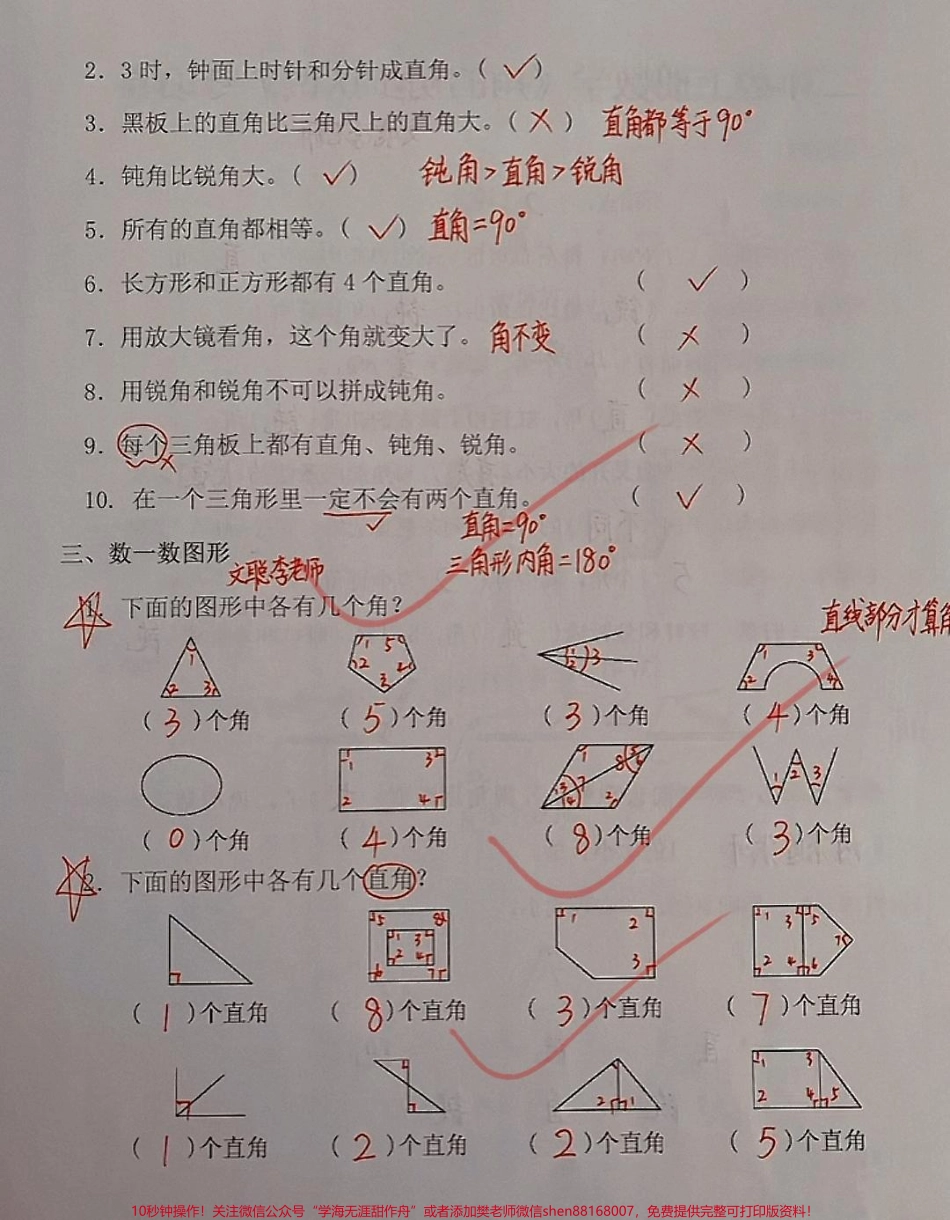 2. 3时，钟面上时针和分针成直角。( ✓ )
3. 黑板上的直角比三角尺上的直角大。( × ) 直角都等于90°
4. 钝角比锐角大。( ✓ ) 钝角>直角>锐角
5. 所有的直角都相等。( ✓ ) 直角=90°
6. 长方形和正方形都有 4 个直角。 ( ✓ )
7. 用放大镜看角，这个角就变大了。角不变 ( × )
8. 用锐角和锐角不可以拼成钝角。 ( × )
9. 每个三角板上都有直角、钝角、锐角。 ( × )
10. 在一个三角形里一定不会有两个直角。 ( ✓ )
直角=90°
三、数一数图形
文聪李老师 三角形内角=180°
1. 下面的图形中各有几个角？
直线部分才算角
1 2 3
1 5 2 2 3
1 2 3
1 3 2 4
( 3 )个角 ( 5 )个角 ( 3 )个角 ( 4 )个角
1 3 2 4
1 2 3
( 0 )个角 ( 4 )个角 ( 8 )个角 ( 3 )个角
2. 下面的图形中各有几个直角？
5 8 1 3 2 4 6 7
1 2 3
1 3 5 7 2 4 6
( 1 )个直角 ( 8 )个直角 ( 3 )个直角 ( 7 )个直角
2 1
1 3 2 4 5
( 1 )个直角 ( 2 )个直角 ( 2 )个直角 ( 5 )个直角
10秒钟操作！关注微信公众号“学海无涯甜作舟”或者添加樊老师微信shen88168007，免费提供完整可打印版资料！